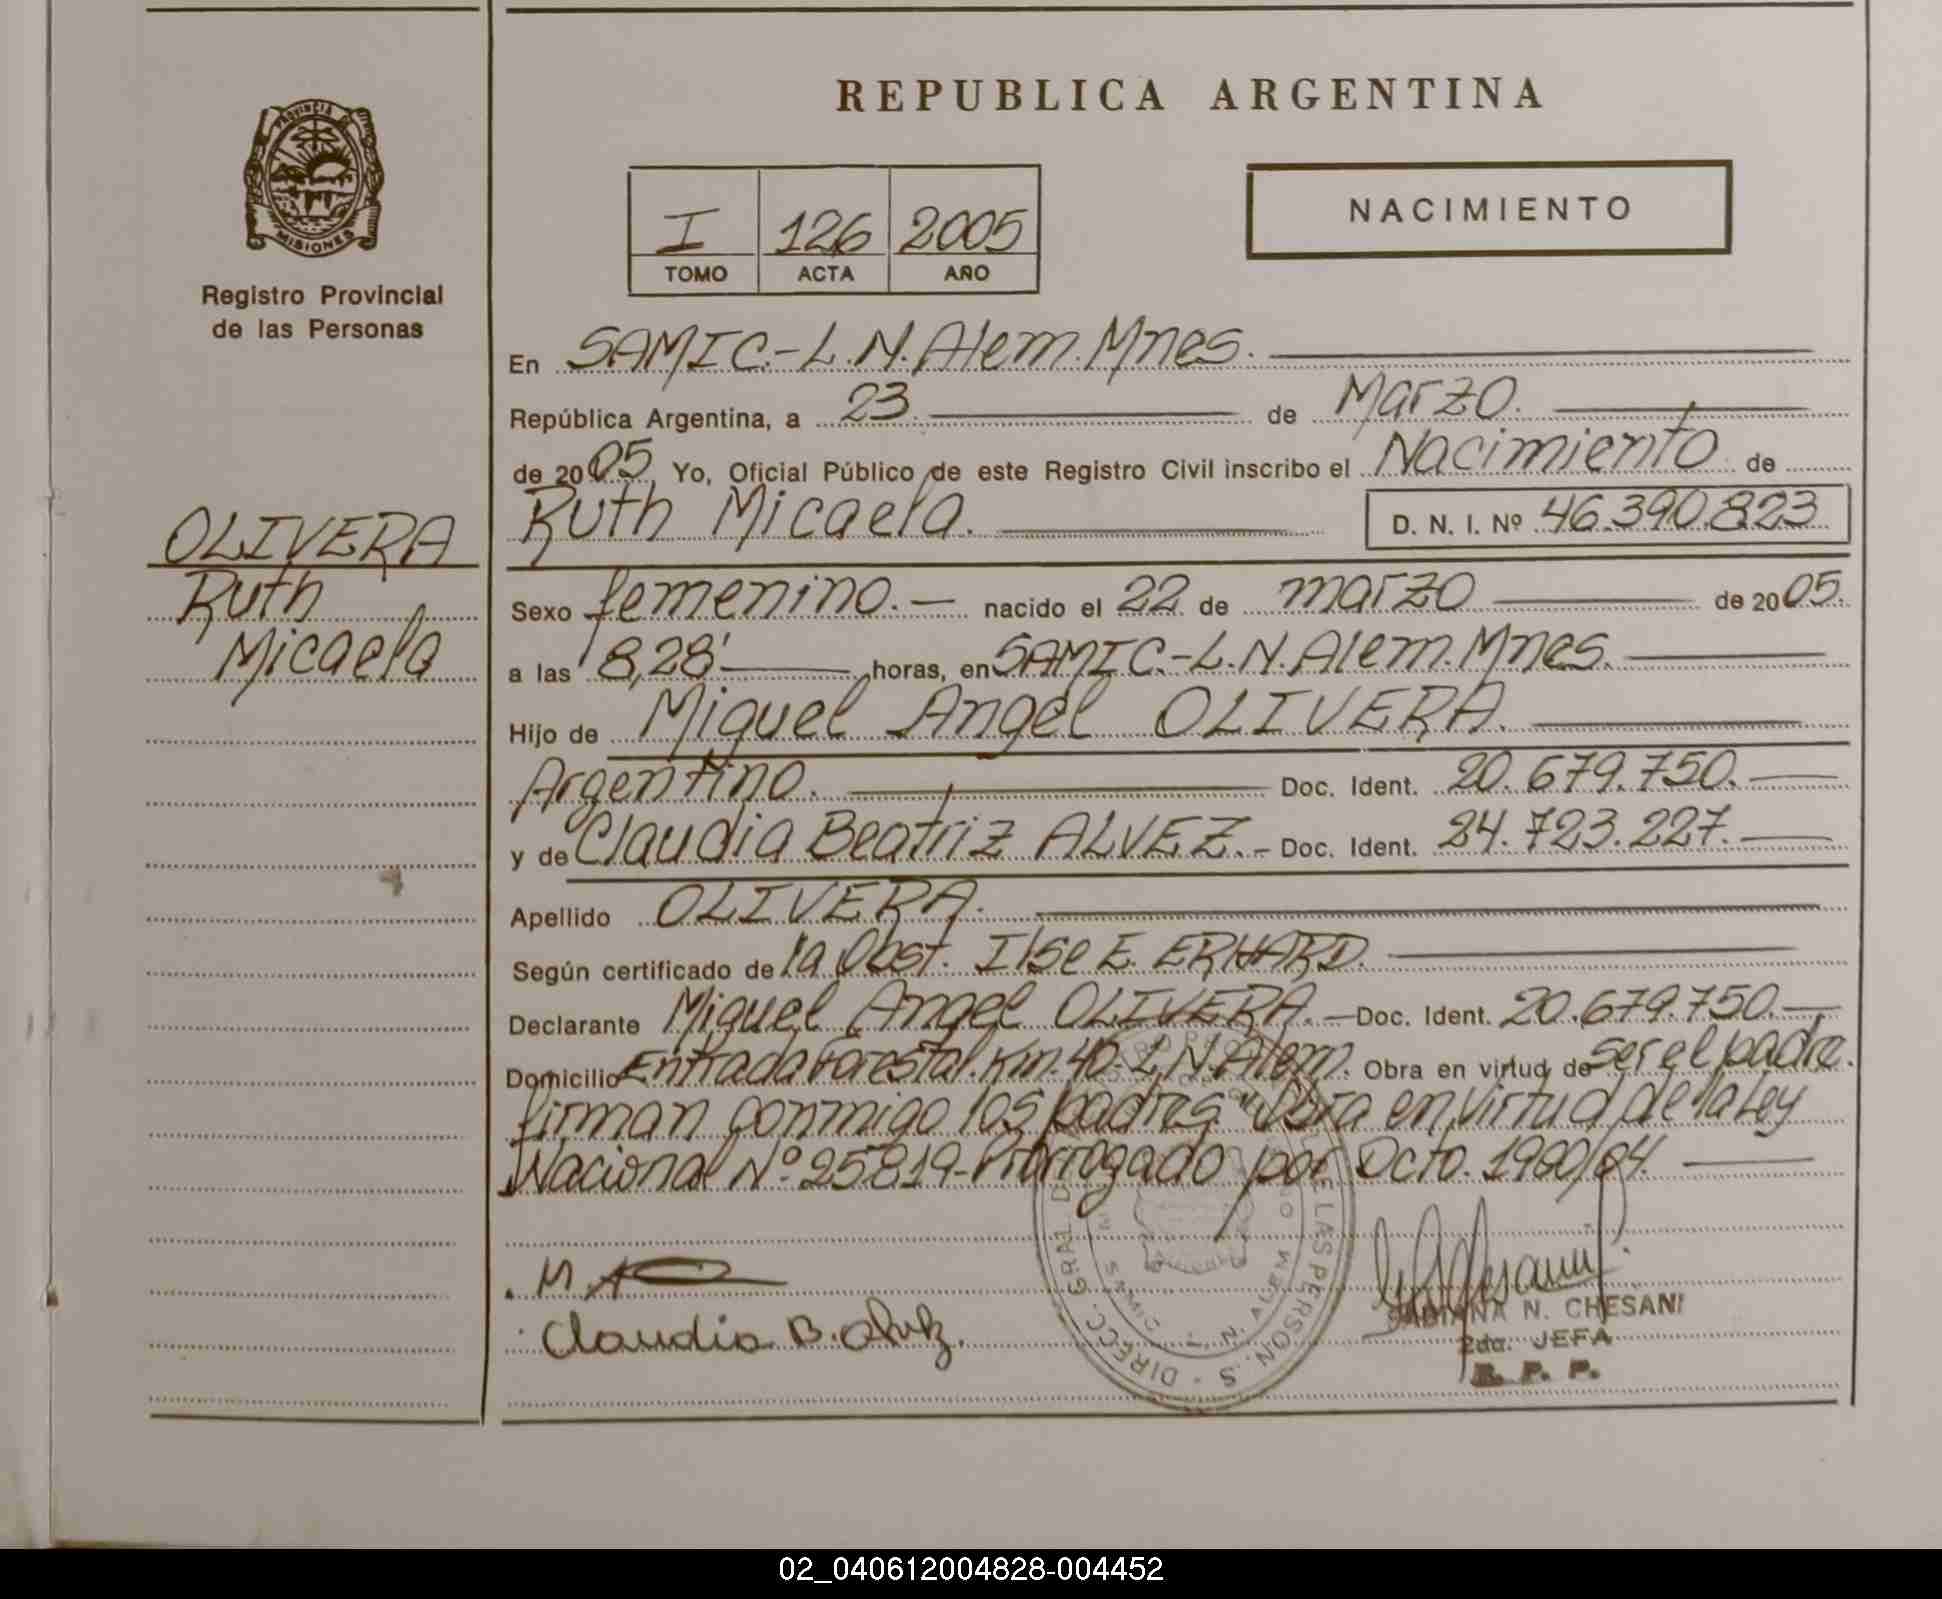 REPUBLICA ARGENTINA
PROVINCIA DE
MISIONES
Registro Provincial
de las Personas
I 126 2005
TOMO ACTA AÑO
NACIMIENTO
En SAMIC.-L.N.Alem.Mnes.
República Argentina, a 23 de Marzo.
de 2005, Yo, Oficial Público de este Registro Civil inscribo el Nacimiento de
OLIVERA
Ruth
Micaela
Ruth Micaela. D. N. I. Nº 46.390.823
Sexo femenino.- nacido el 22 de marzo de 2005.
a las 8,28' horas, en SAMIC.-L.N.Alem.Mnes.
Hijo de Miguel Angel OLIVERA.
Argentino. Doc. Ident. 20.679.750.
y de Claudia Beatriz ALVEZ.- Doc. Ident. 24.723.227.
Apellido OLIVERA.
Según certificado de la Obst. Ilse E. ERHARD.
Declarante Miguel Angel OLIVERA.- Doc. Ident. 20.679.750.
Domicilio Entrada Forestal.Km.40-L.N.Alem. Obra en virtud de ser el padre.
firman conmigo los padres "Obra en virtud de la Ley
Nacional Nº 25819-Prorrogado por Dcto. 1900/04.
Claudia B. Alvez.
FABIANA N. CHESANI
2da. JEFA
R. P. P.
DIRECC. GRAL. DE LAS PERSONAS
L. N. ALEM
02_040612004828-004452